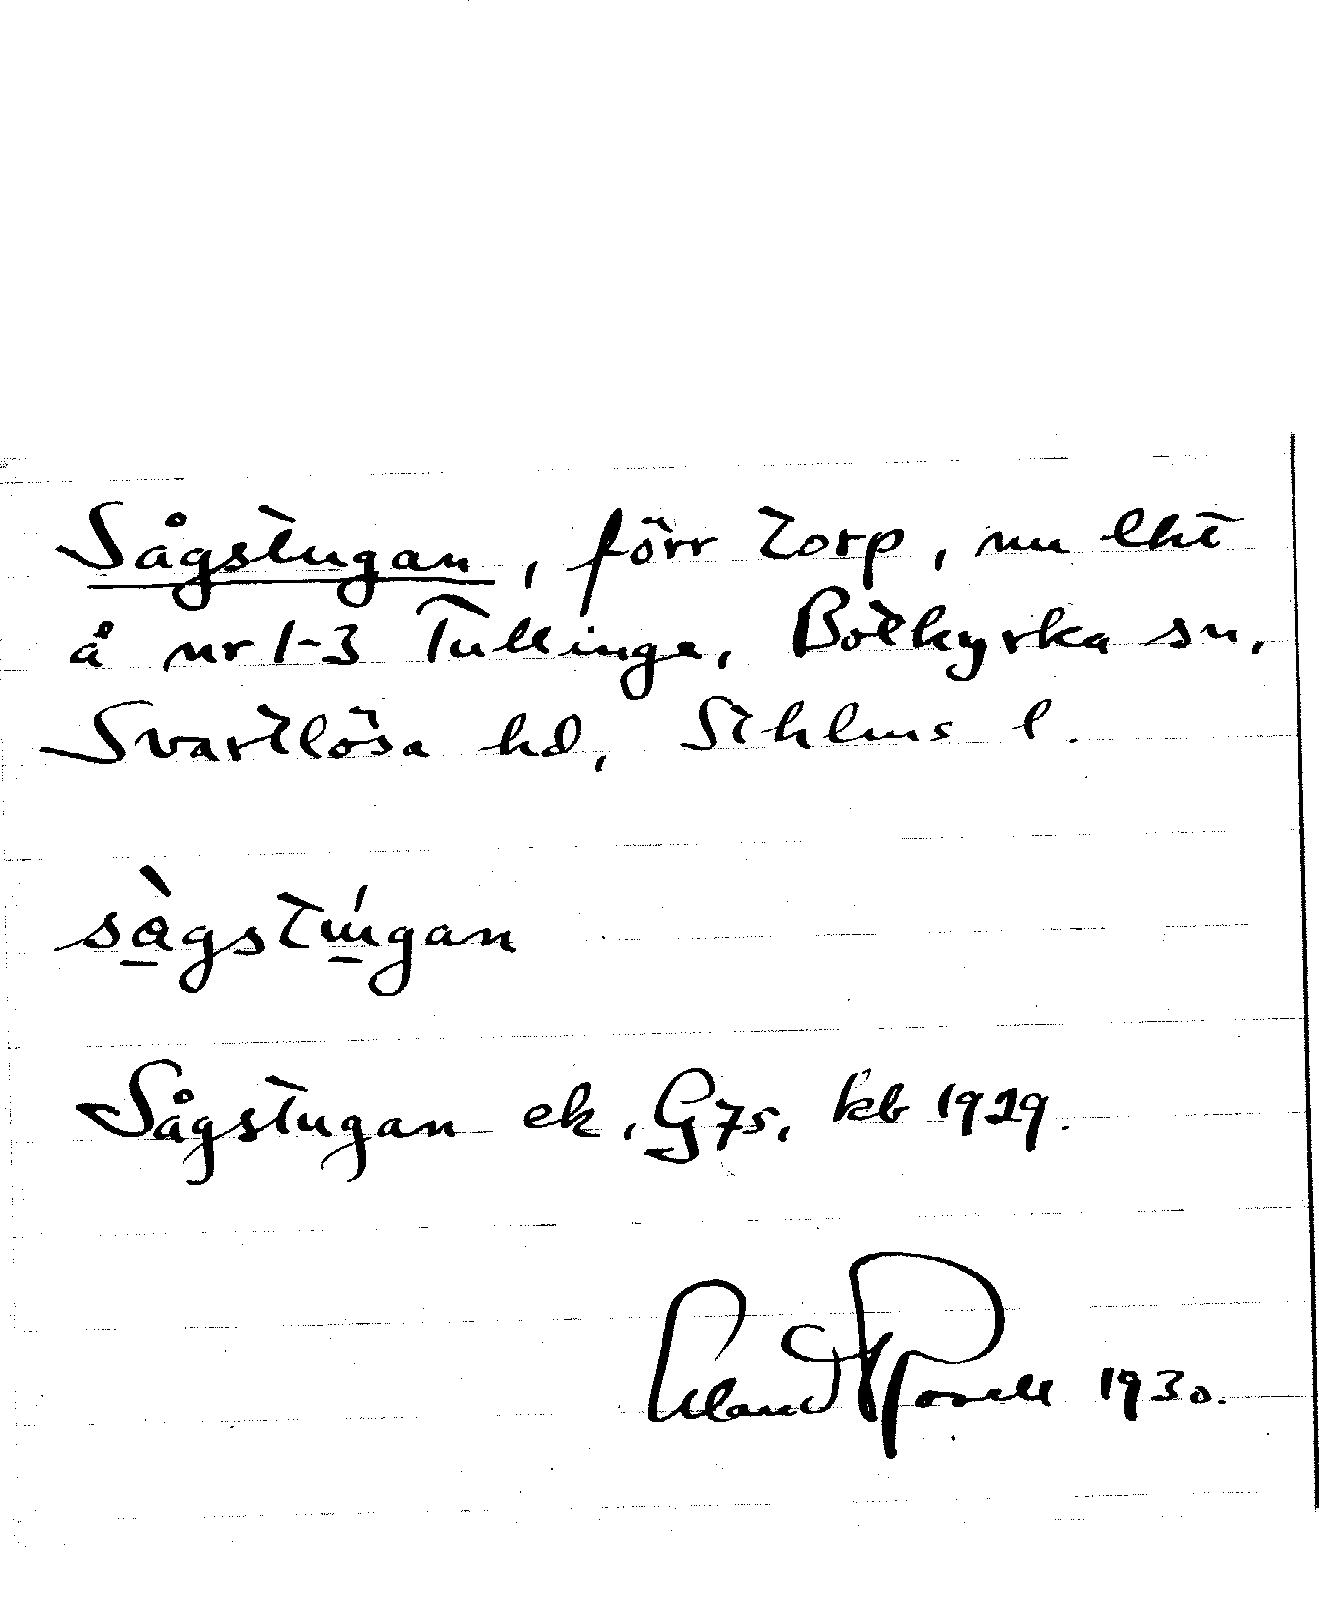 Sågstugan, förr torp, nu lht
å nr 1-3 Tullinge, Botkyrka sn,
Svartlösa hd, Sthlms l.
sàgstúgan
Sågstugan ek, G7s, kb 1929.
1930.